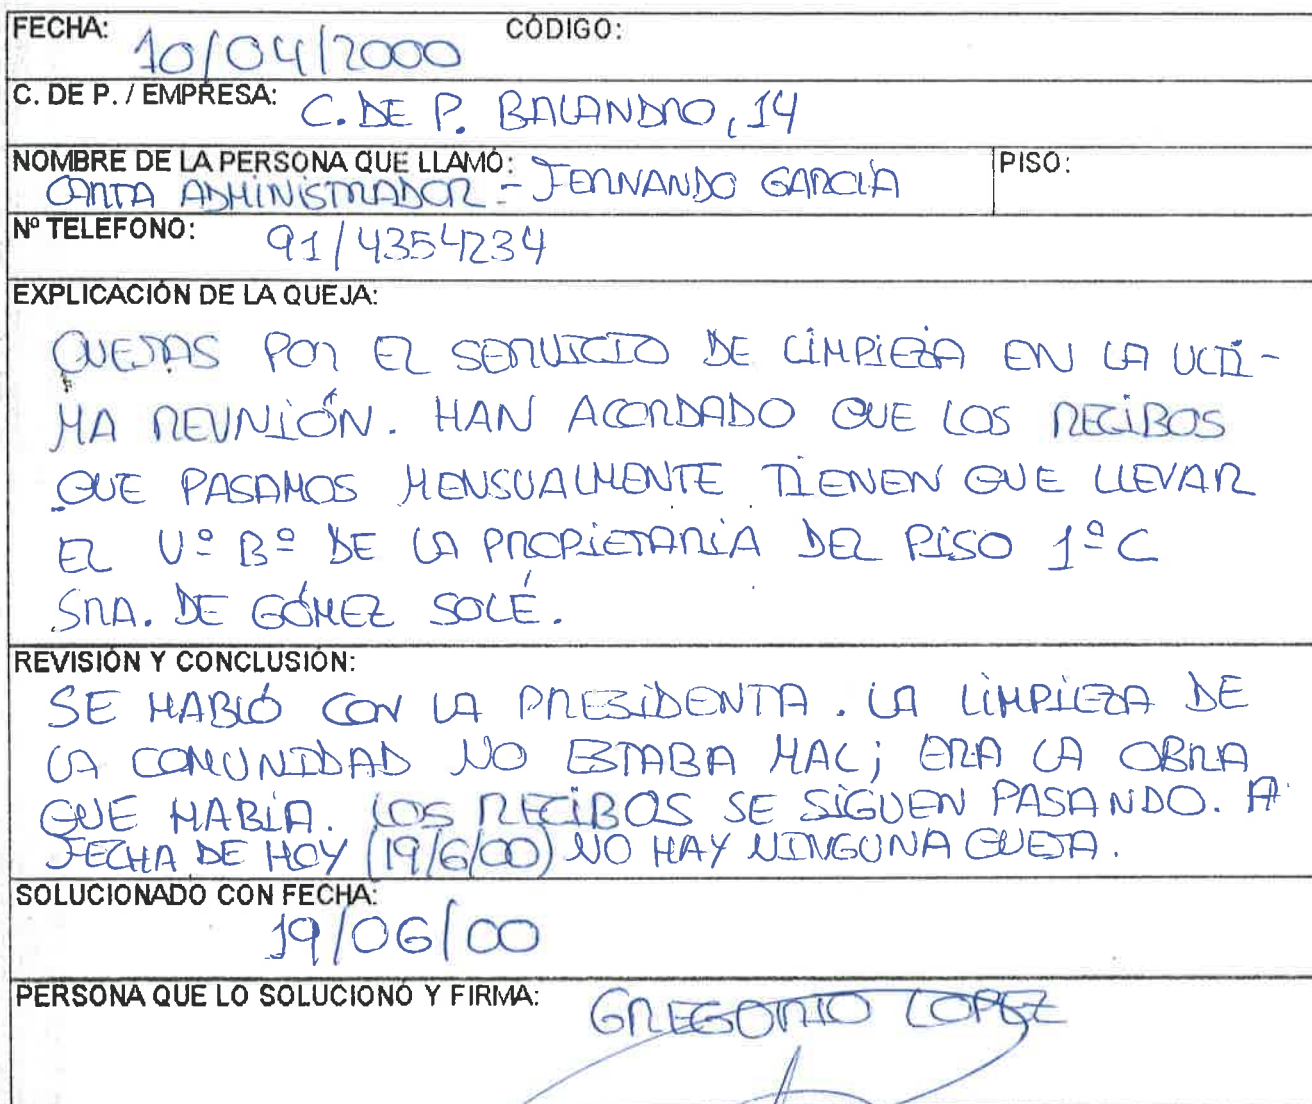 FECHA: 10/04/2000 CÓDIGO:
C. DE P. / EMPRESA: C. DE P. BALANDRO, 14
NOMBRE DE LA PERSONA QUE LLAMÓ: PISO:
CARTA ADMINISTRADOR - FERNANDO GARCÍA
Nº TELEFONO: 91/4354234
EXPLICACIÓN DE LA QUEJA:
QUEJAS POR EL SERVICIO DE LIMPIEZA EN LA ULTI-
MA REUNIÓN. HAN ACORDADO QUE LOS RECIBOS
QUE PASAMOS MENSUALMENTE TIENEN QUE LLEVAR
EL Vº Bº DE LA PROPIETARIA DEL PISO 1º C
SRA. DE GÓMEZ SOLÉ.
REVISIÓN Y CONCLUSIÓN:
SE HABLÓ CON LA PRESIDENTA. LA LIMPIEZA DE
LA COMUNIDAD NO ESTABA MAL; ERA LA OBRA
QUE HABÍA. LOS RECIBOS SE SIGUEN PASANDO. A
FECHA DE HOY (19/6/00) NO HAY NINGUNA QUEJA.
SOLUCIONADO CON FECHA:
19/06/00
PERSONA QUE LO SOLUCIONÓ Y FIRMA: GREGORIO LOPEZ